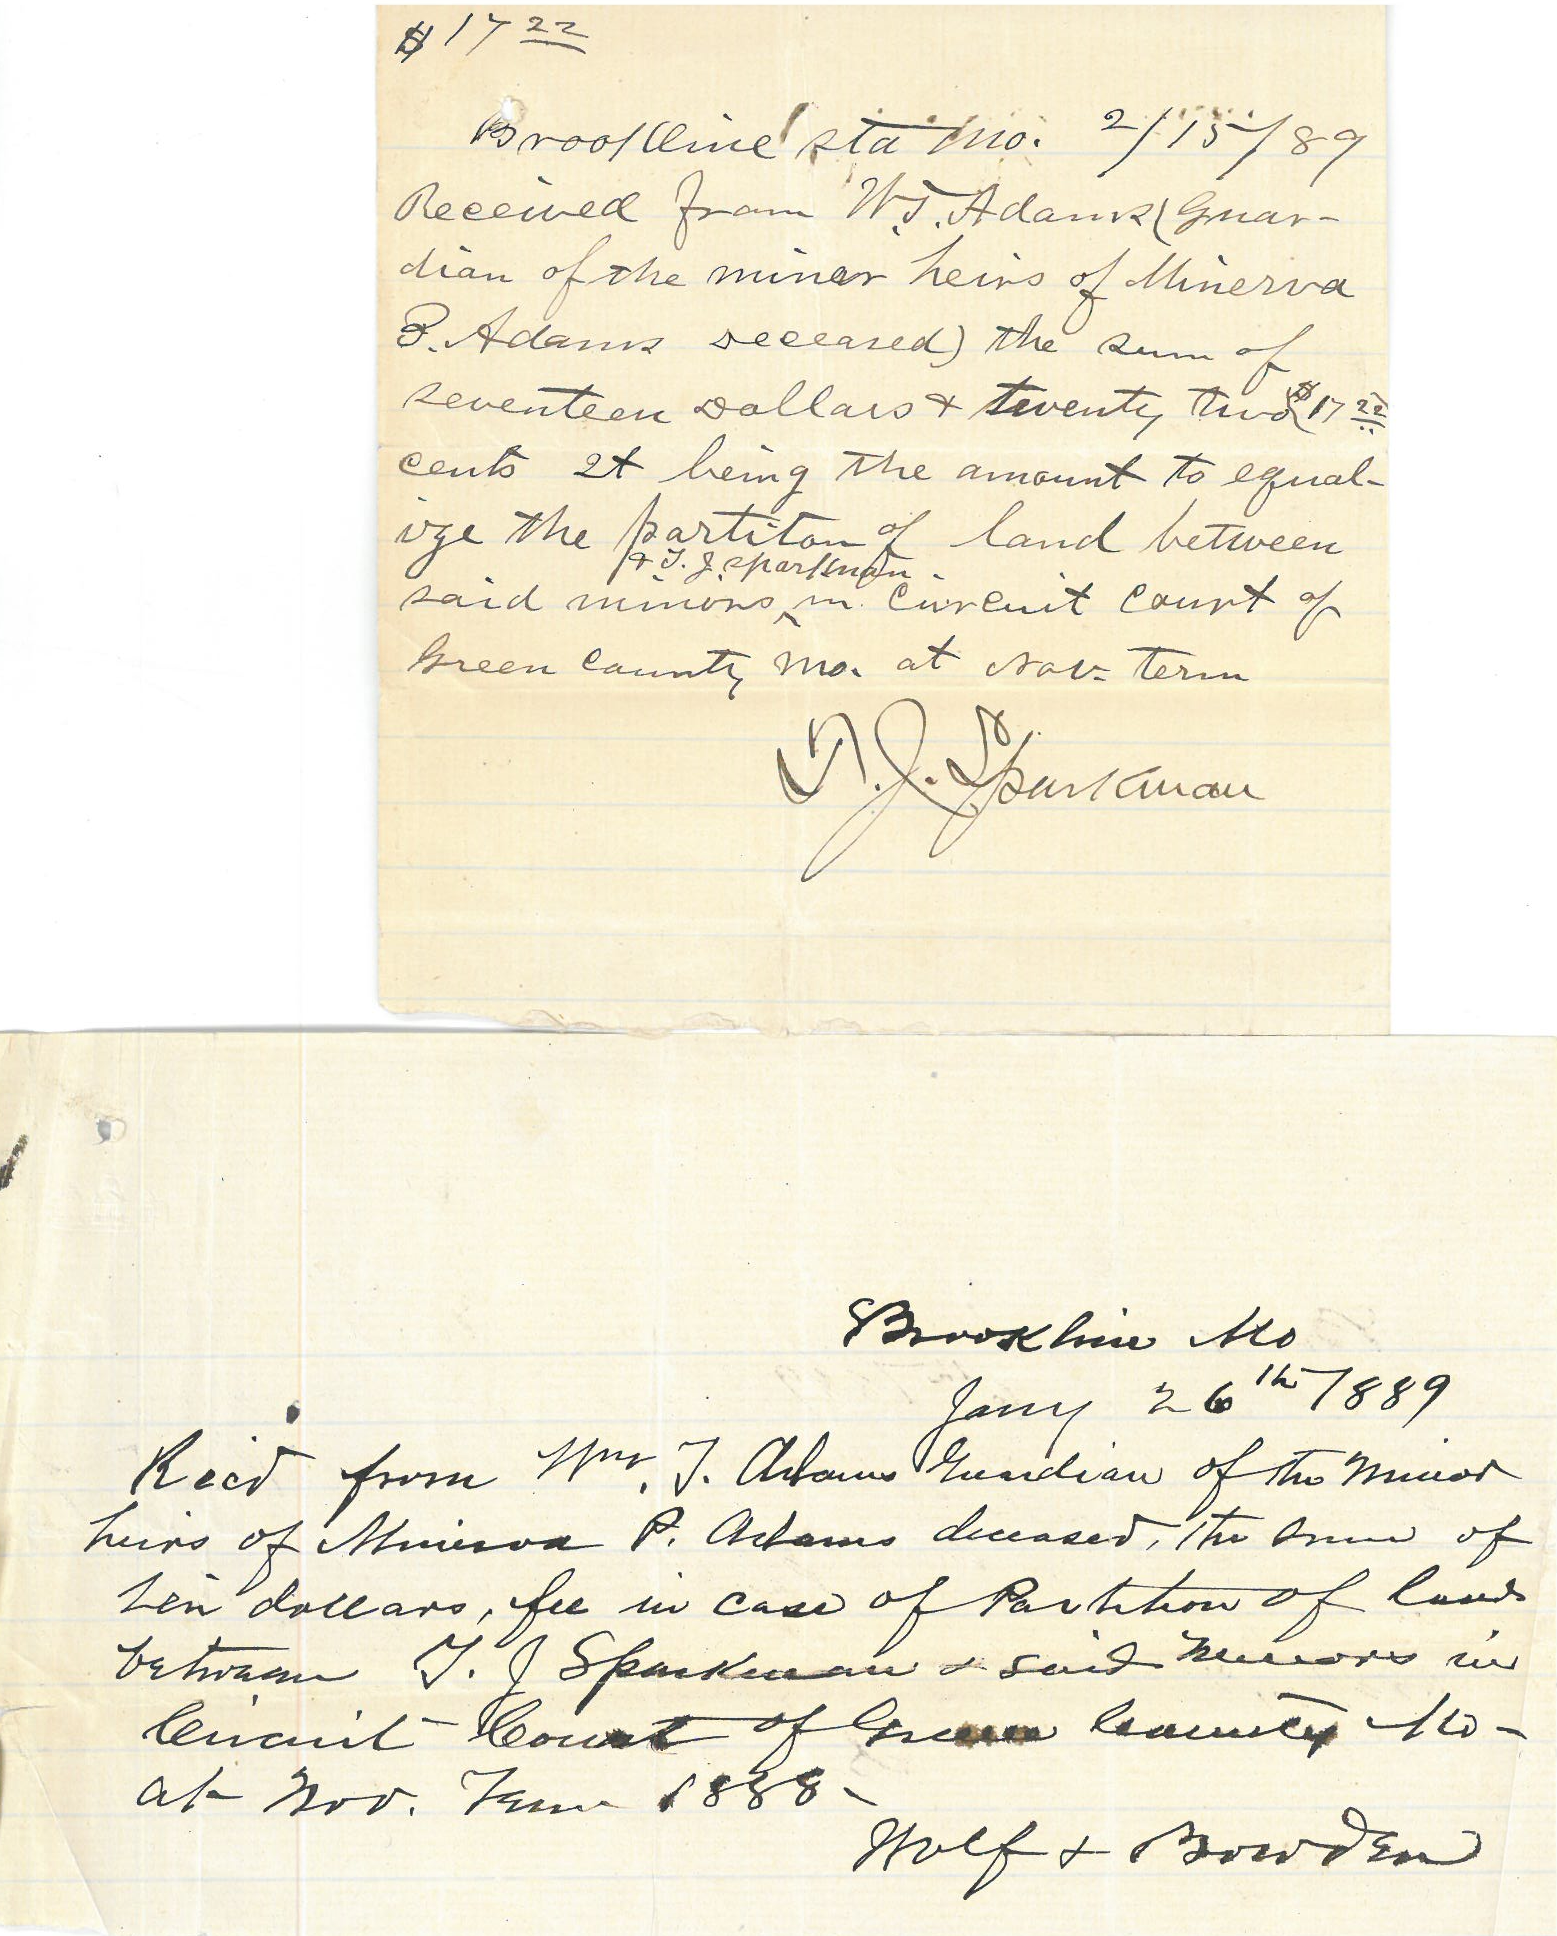 $17 22
Brookline sta Mo. 2/15/89
Received from W.T. Adams (Guar-
dian of the minor heirs of Minerva
P. Adams deceased) the sum of
seventeen Dollars & twenty two ($17 22
cents it being the amount to equal-
ize the partiton of land between
& T. J. Sparkman
said minors ^ in Circuit Court of
Green County Mo. at Nov- term
T. J. Sparkman
Brookline Mo
Jany 26th 1889
Rec'd from Wm. T. Adams Guardian of the Minor
heirs of Minerva P. Adams deceased, the sum of
ten dollars, fee in case of Partition of lands
between T. J Sparkman & said Minors in
Circuit Court of Greene County Mo-
at Nov. Term 1888-
Wolf & Bowden